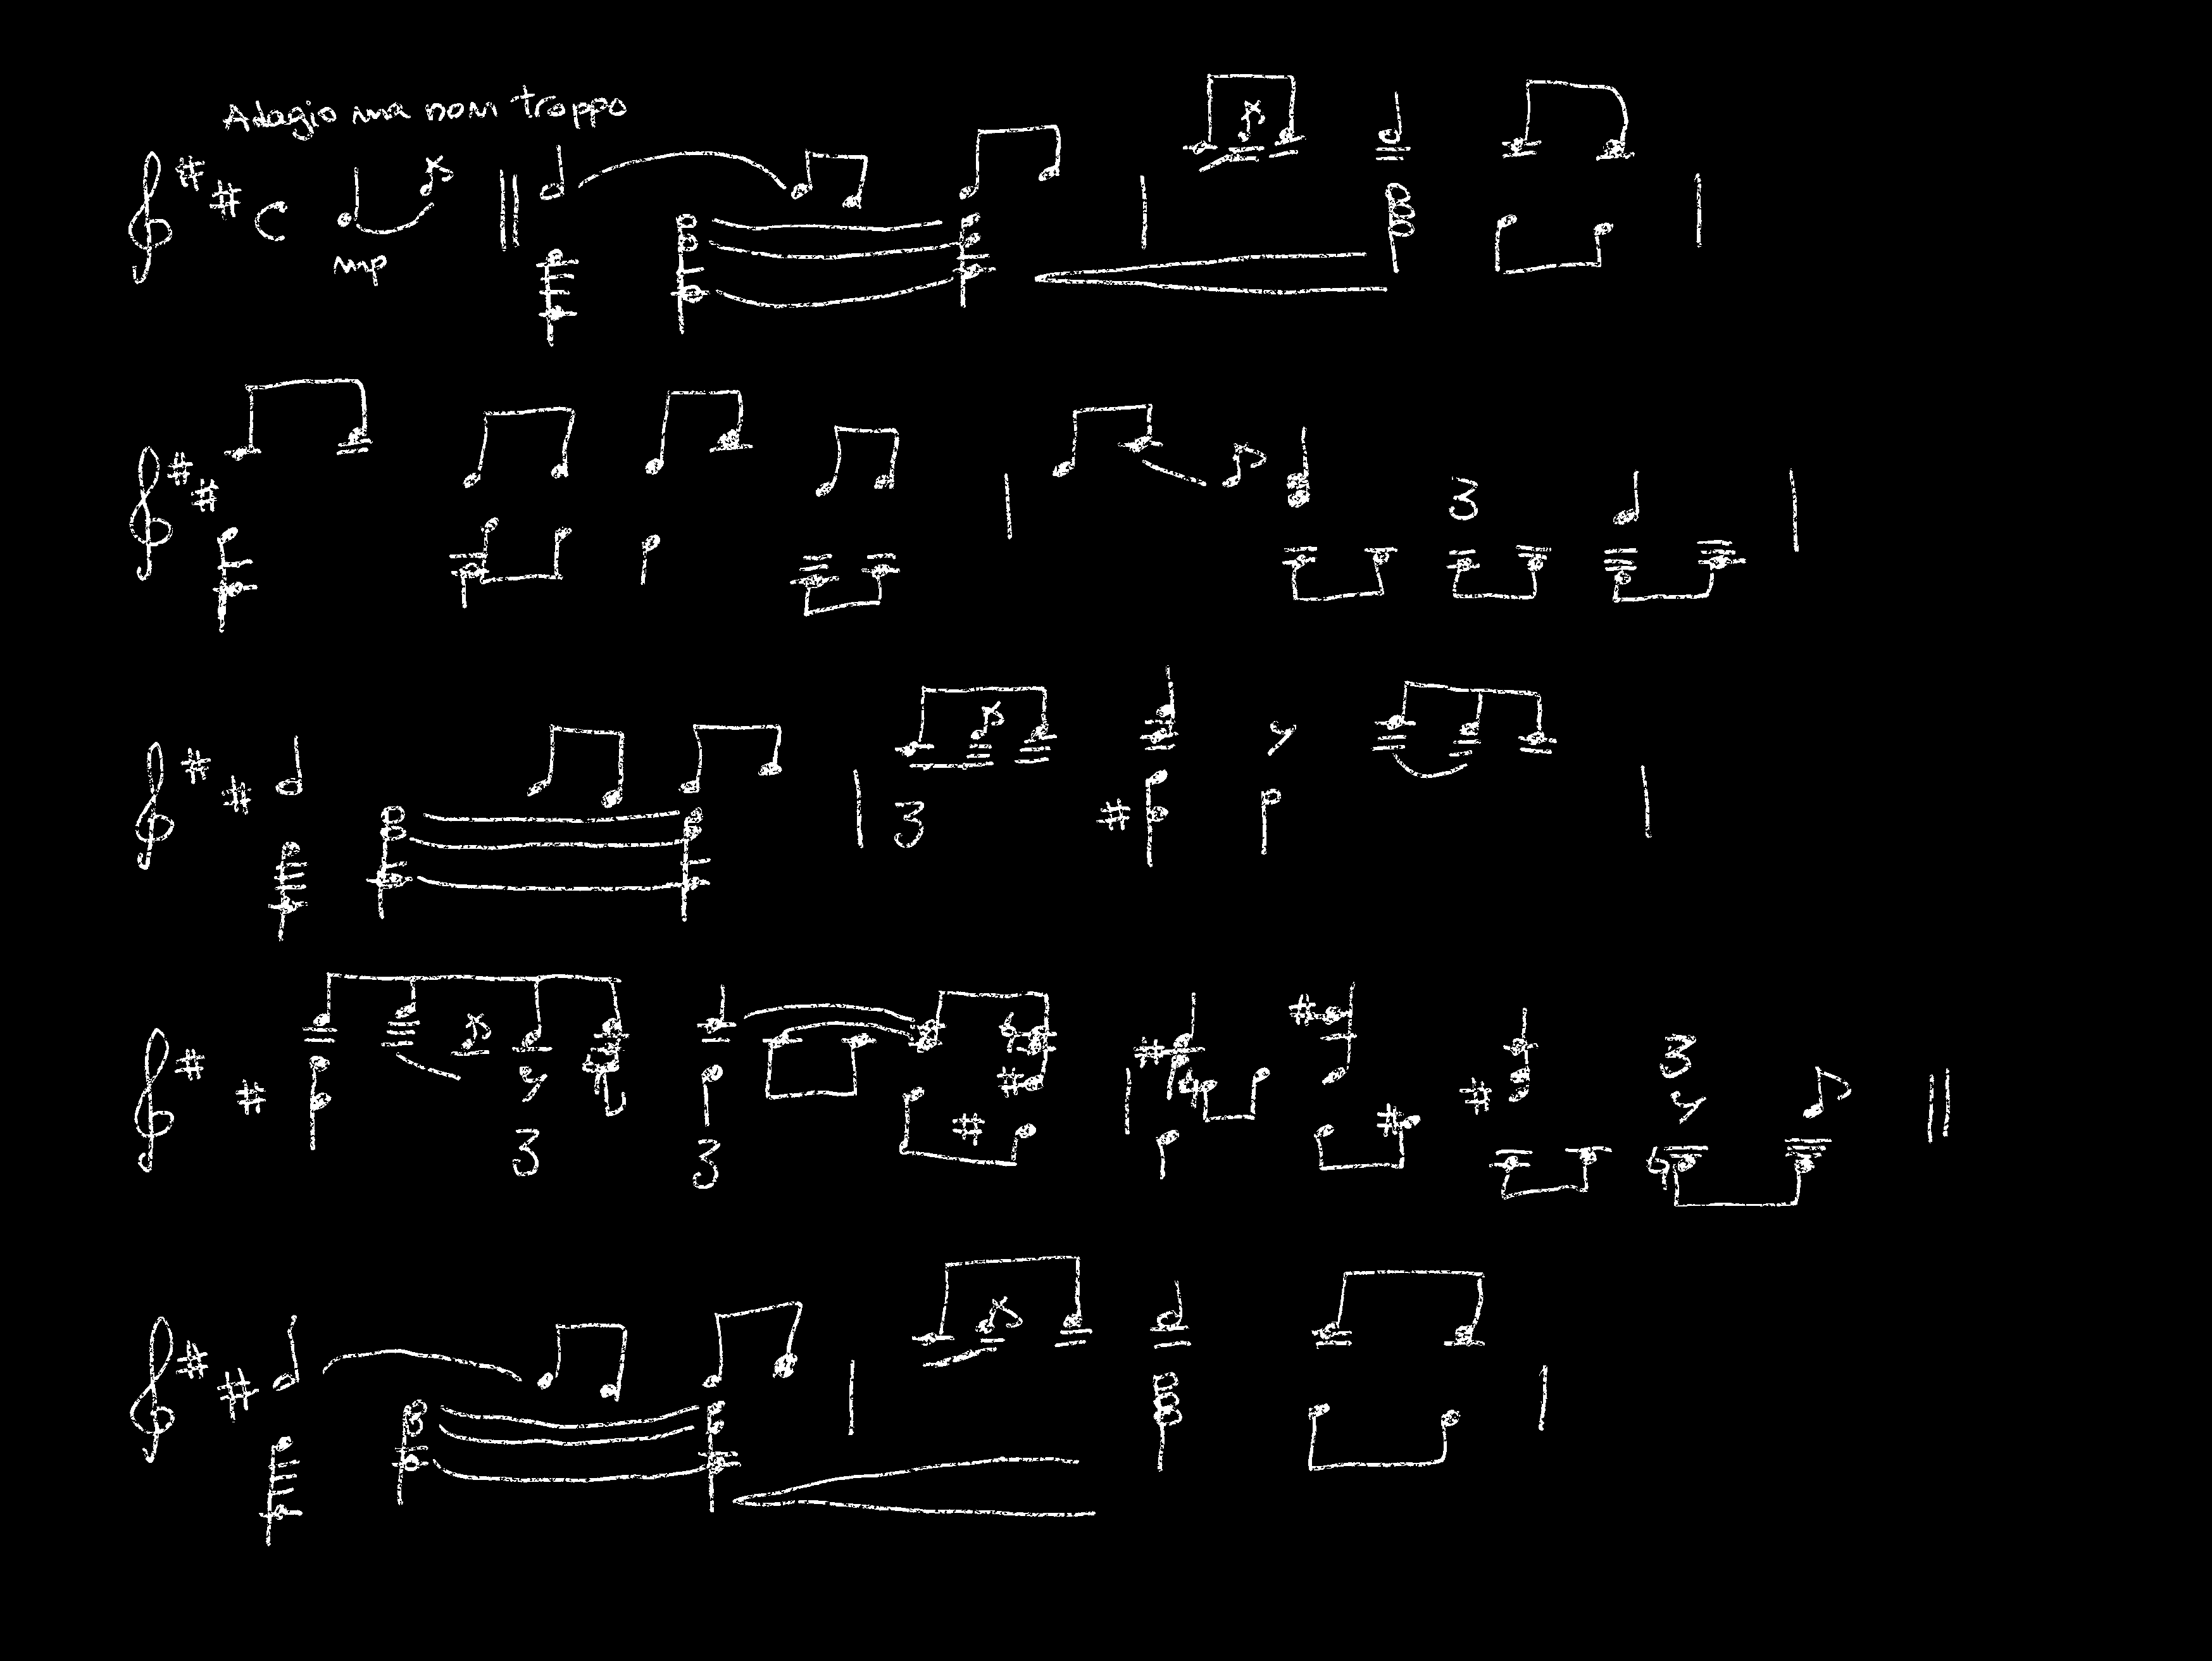 Adagio ma non troppo
mp
3
3
3 3
3